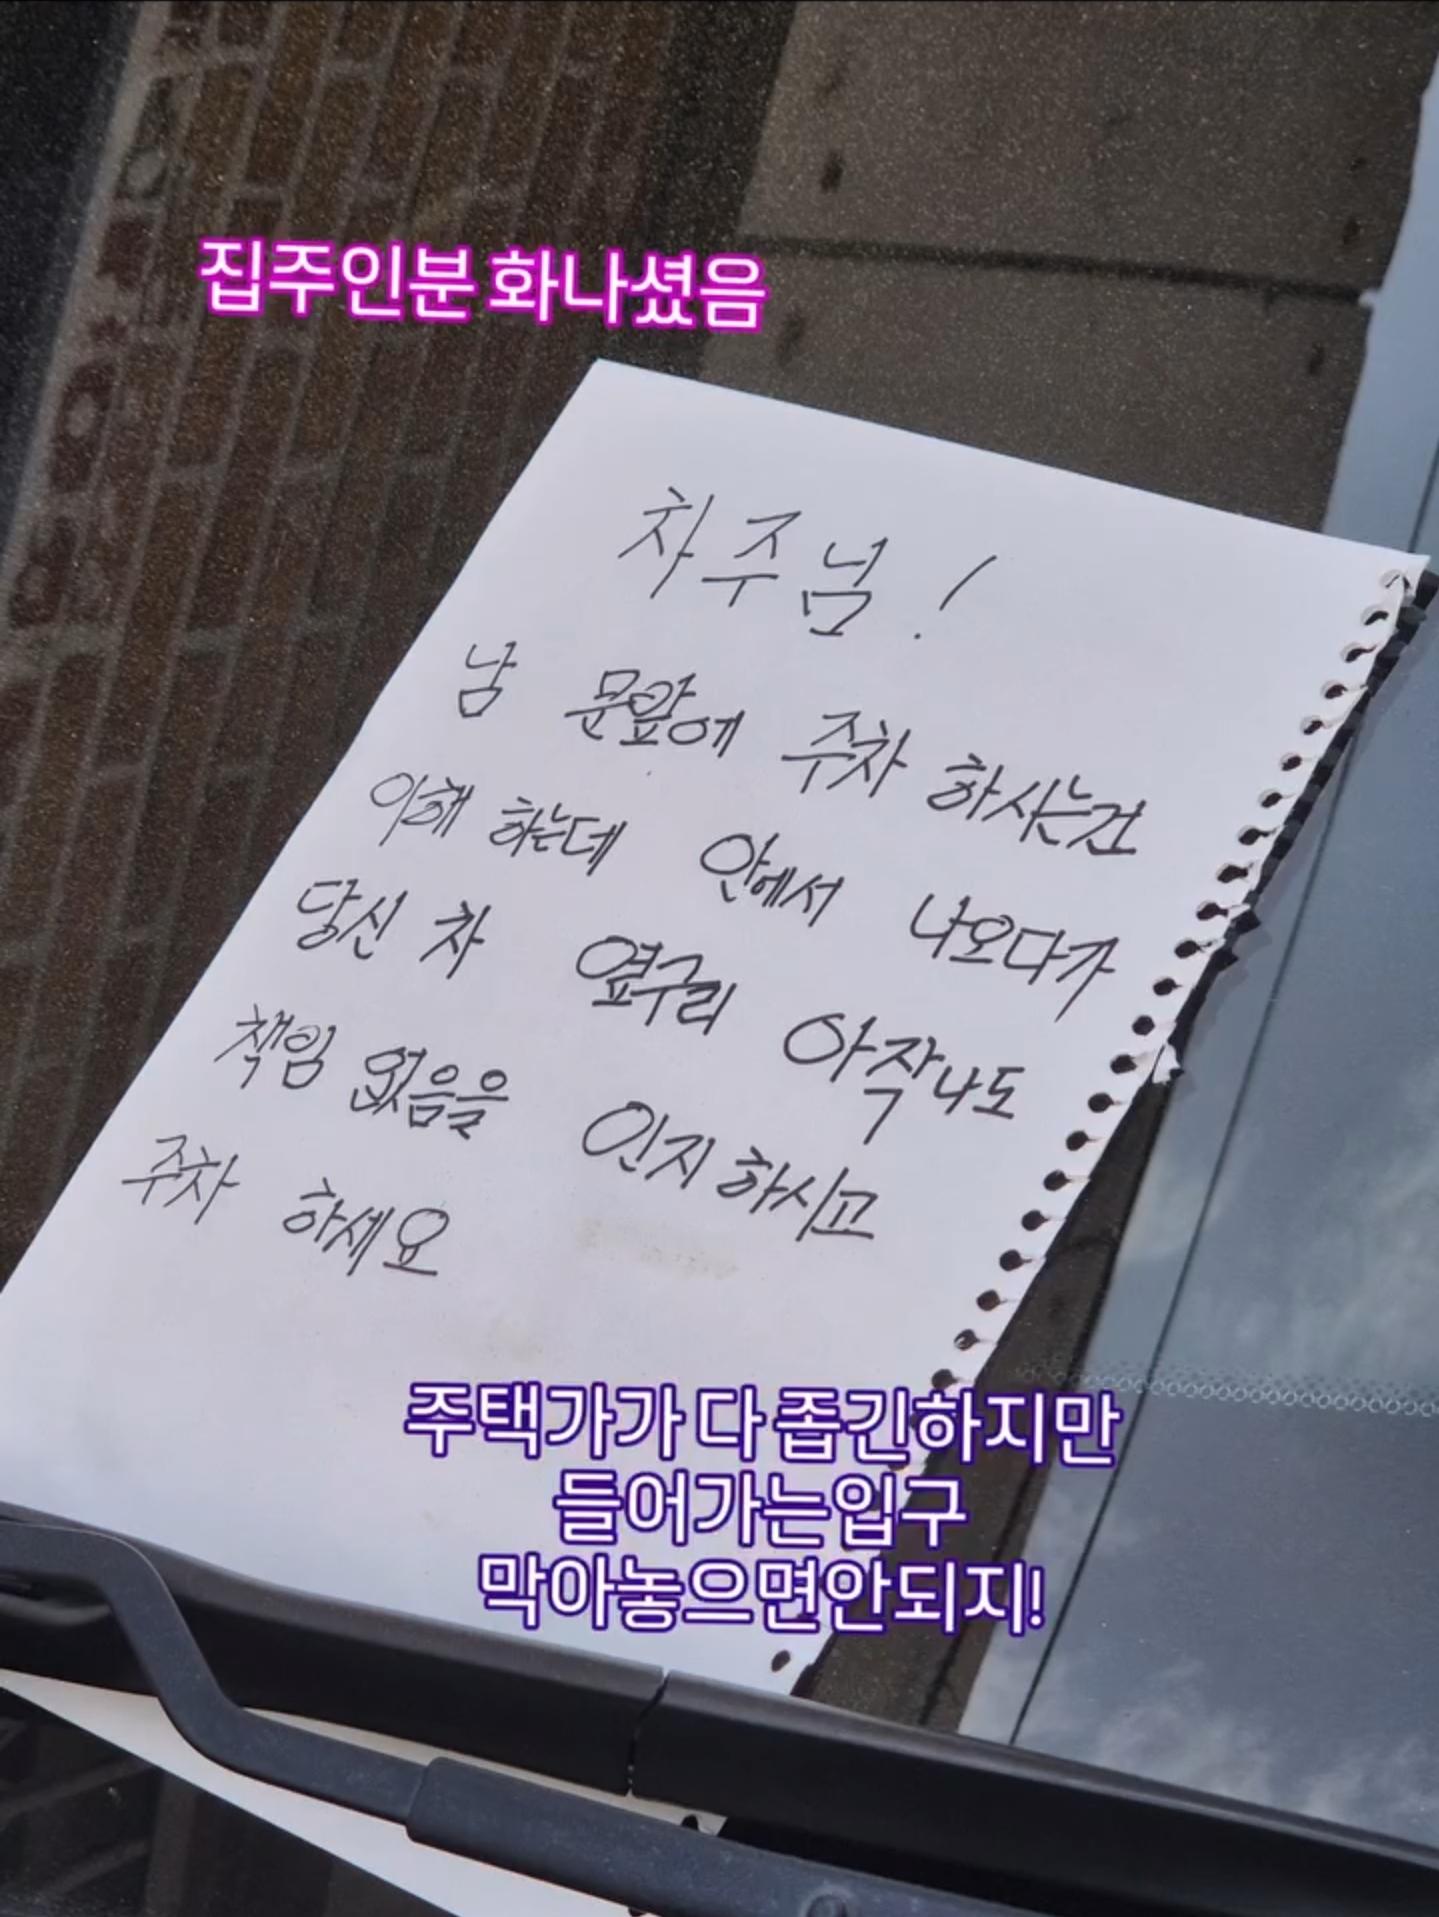 집주인분 화나셨음
차주님!
남 문앞에 주차 하시는건
이해 하는데 안에서 나오다가
당신 차 옆구리 아작나도
책임 없음을 인지하시고
주차 하세요
주택가가 다 좁긴하지만
들어가는입구
막아놓으면안되지!